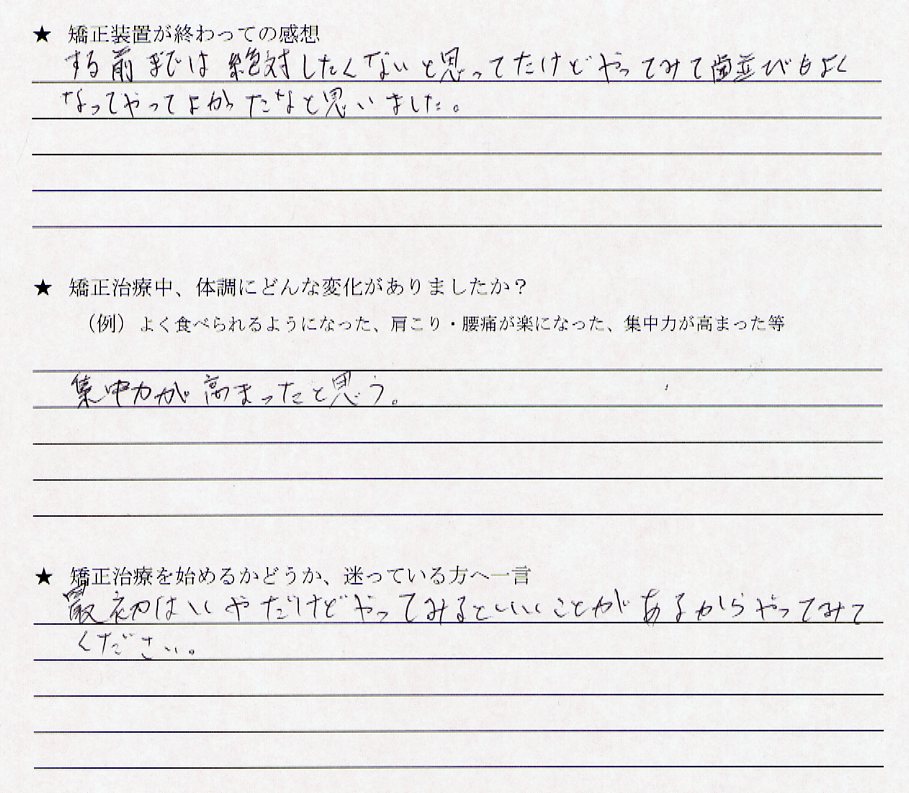 ★ 矯正装置が終わっての感想
する前までは絶対したくないと思ってたけどやってみて歯並びもよく
なってやってよかったなと思いました。
★ 矯正治療中、体調にどんな変化がありましたか？
（例）よく食べられるようになった、肩こり・腰痛が楽になった、集中力が高まった等
集中力が高まったと思う。
★ 矯正治療を始めるかどうか、迷っている方へ一言
最初はいやだけどやってみるといいことがあるからやってみて
ください。